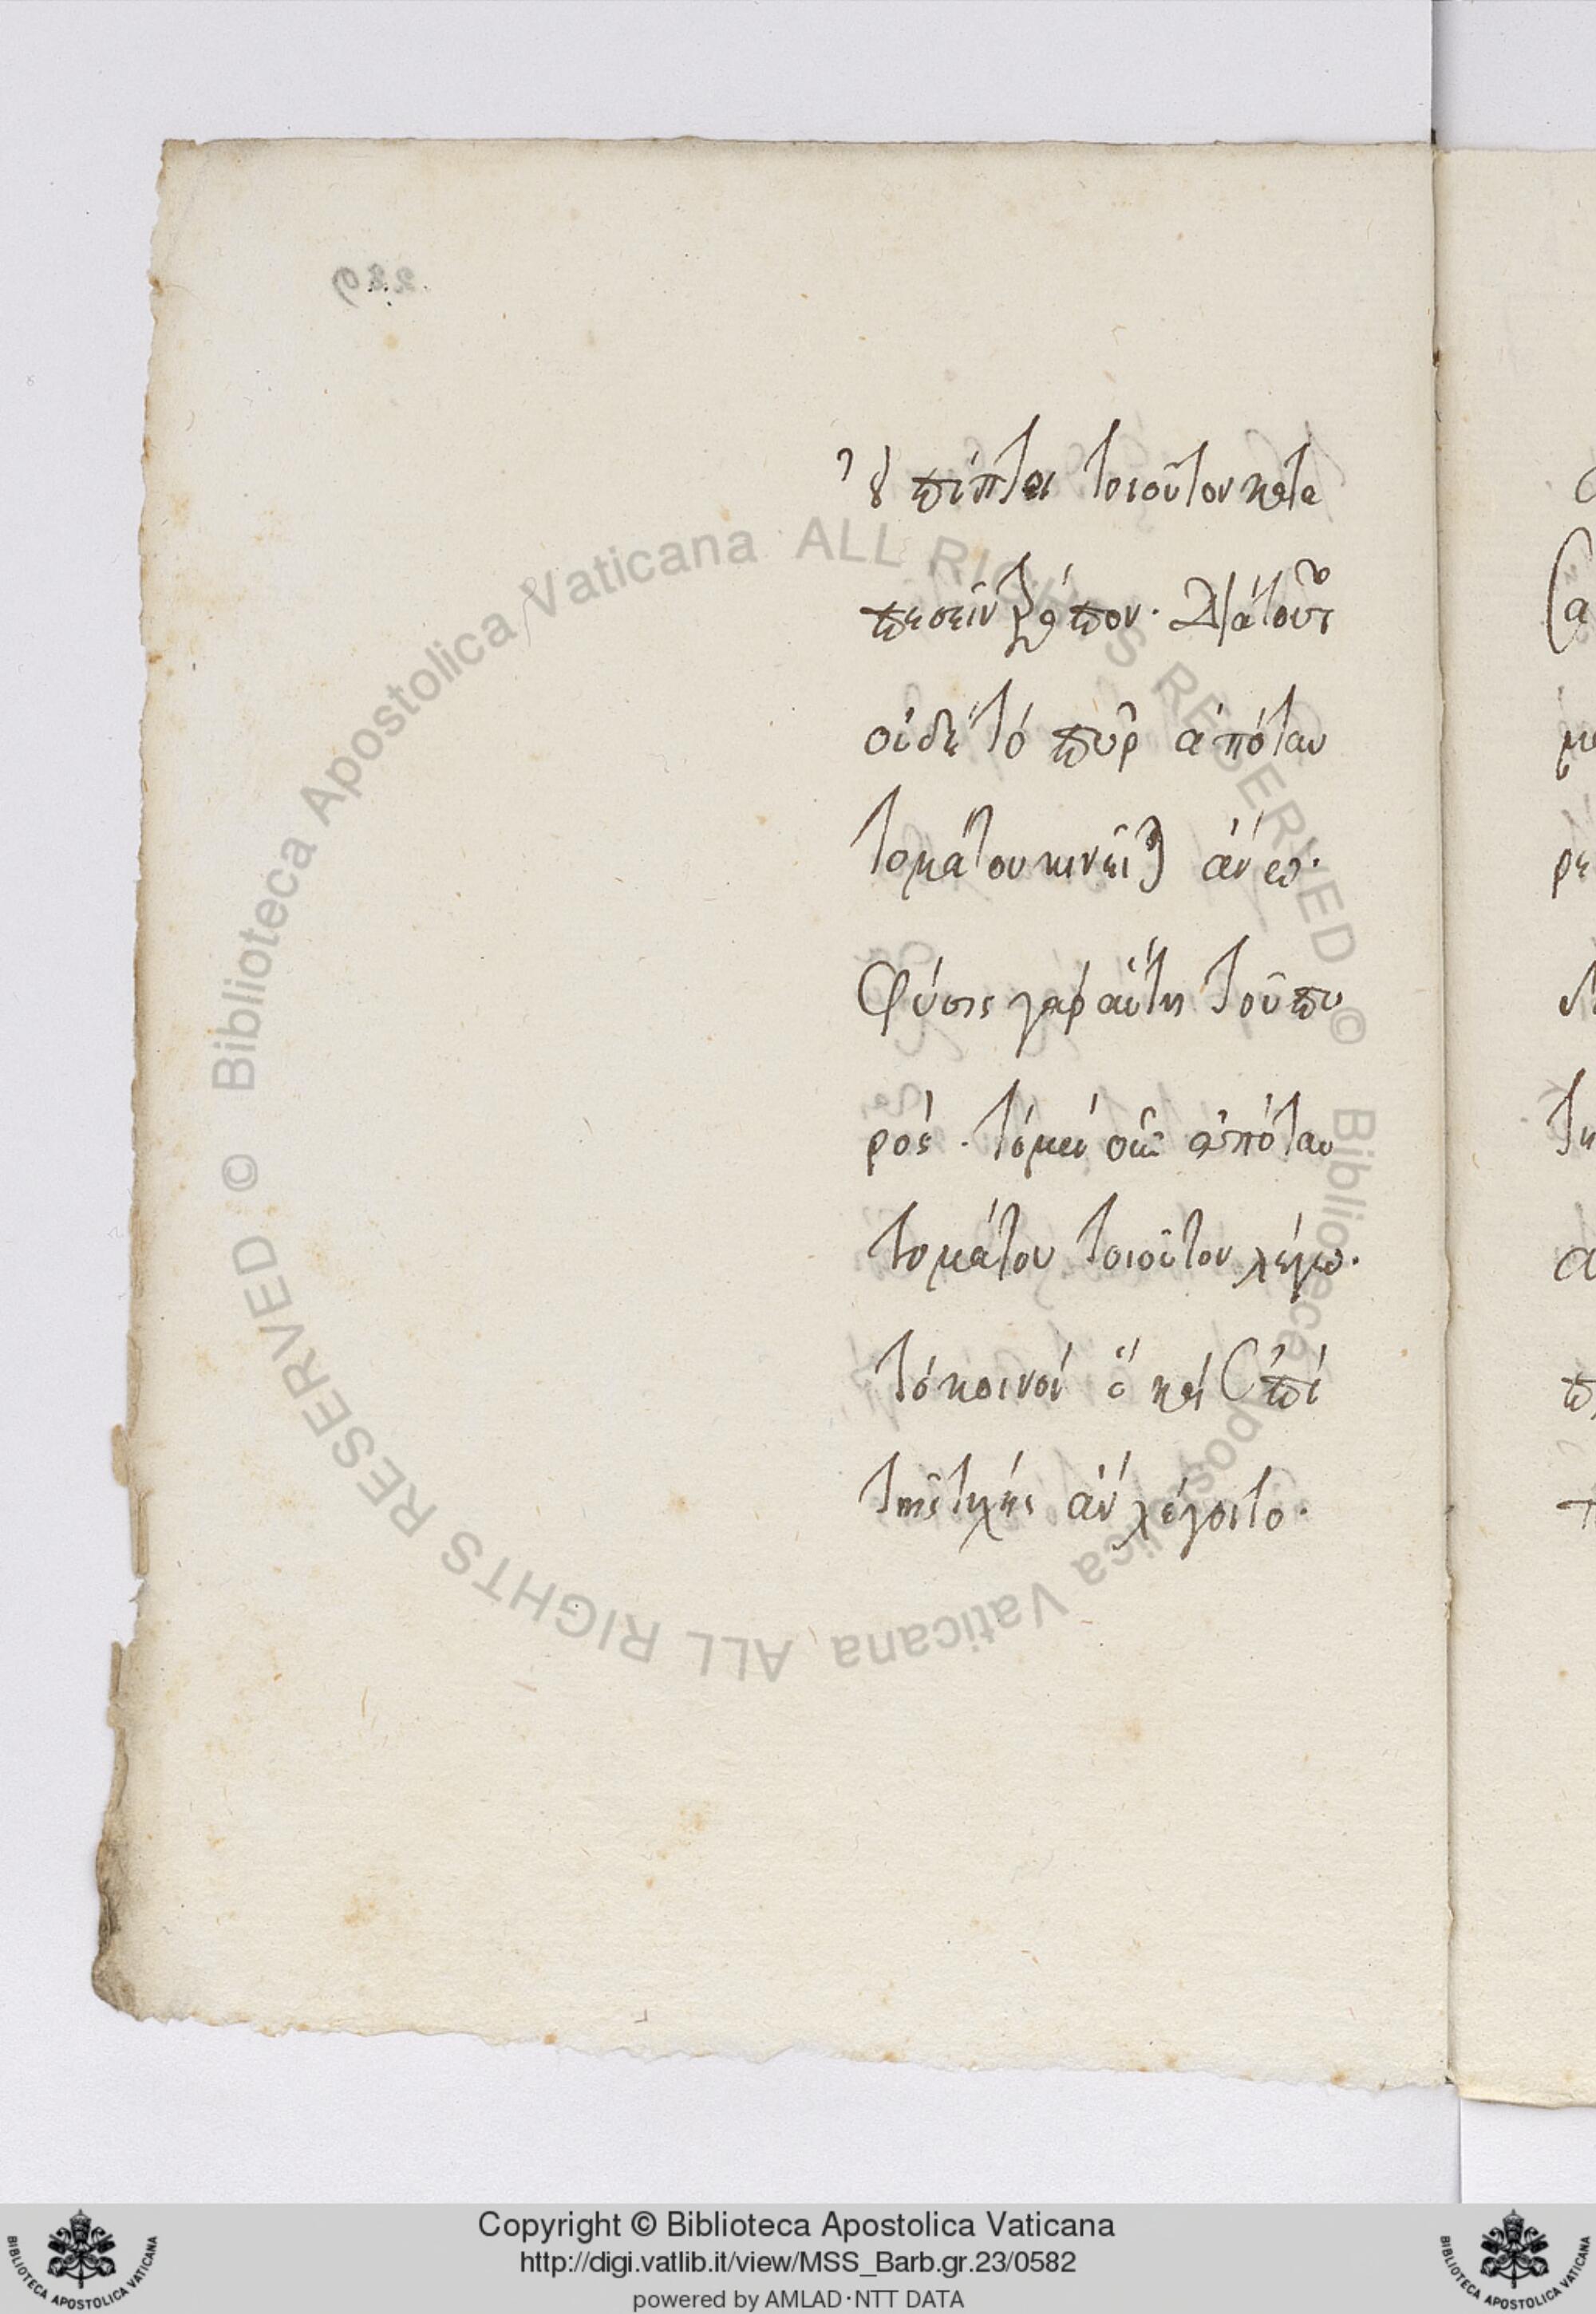 289
οὐ πίπτει τοιοῦτον κατα
πεσεῖν τρόπον. Διὰ τοῦτ
οὐδὲ τὸ πῦρ ἀπὸ ταυ
τομάτου κινεῖται ἄνω.
Φύσις γὰρ αὕτη τοῦ πυ
ρός. τὸ μὲν οὖν ἀπὸ ταυ
τομάτου τοιοῦτον λέγω.
τὸ κοινὸν ὃ καὶ ἐπὶ
τῆς τύχης ἂν λέγοιτο.
© Biblioteca Apostolica Vaticana ALL RIGHTS RESERVED © Biblioteca Apostolica Vaticana ALL RIGHTS RESERVED
Copyright © Biblioteca Apostolica Vaticana
http://digi.vatlib.it/view/MSS_Barb.gr.23/0582
powered by AMLAD·NTT DATA
BIBLIOTECA APOSTOLICA VATICANA
BIBLIOTECA APOSTOLICA VATICANA